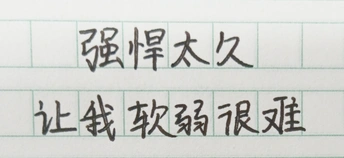 强悍太久
让我软弱很难